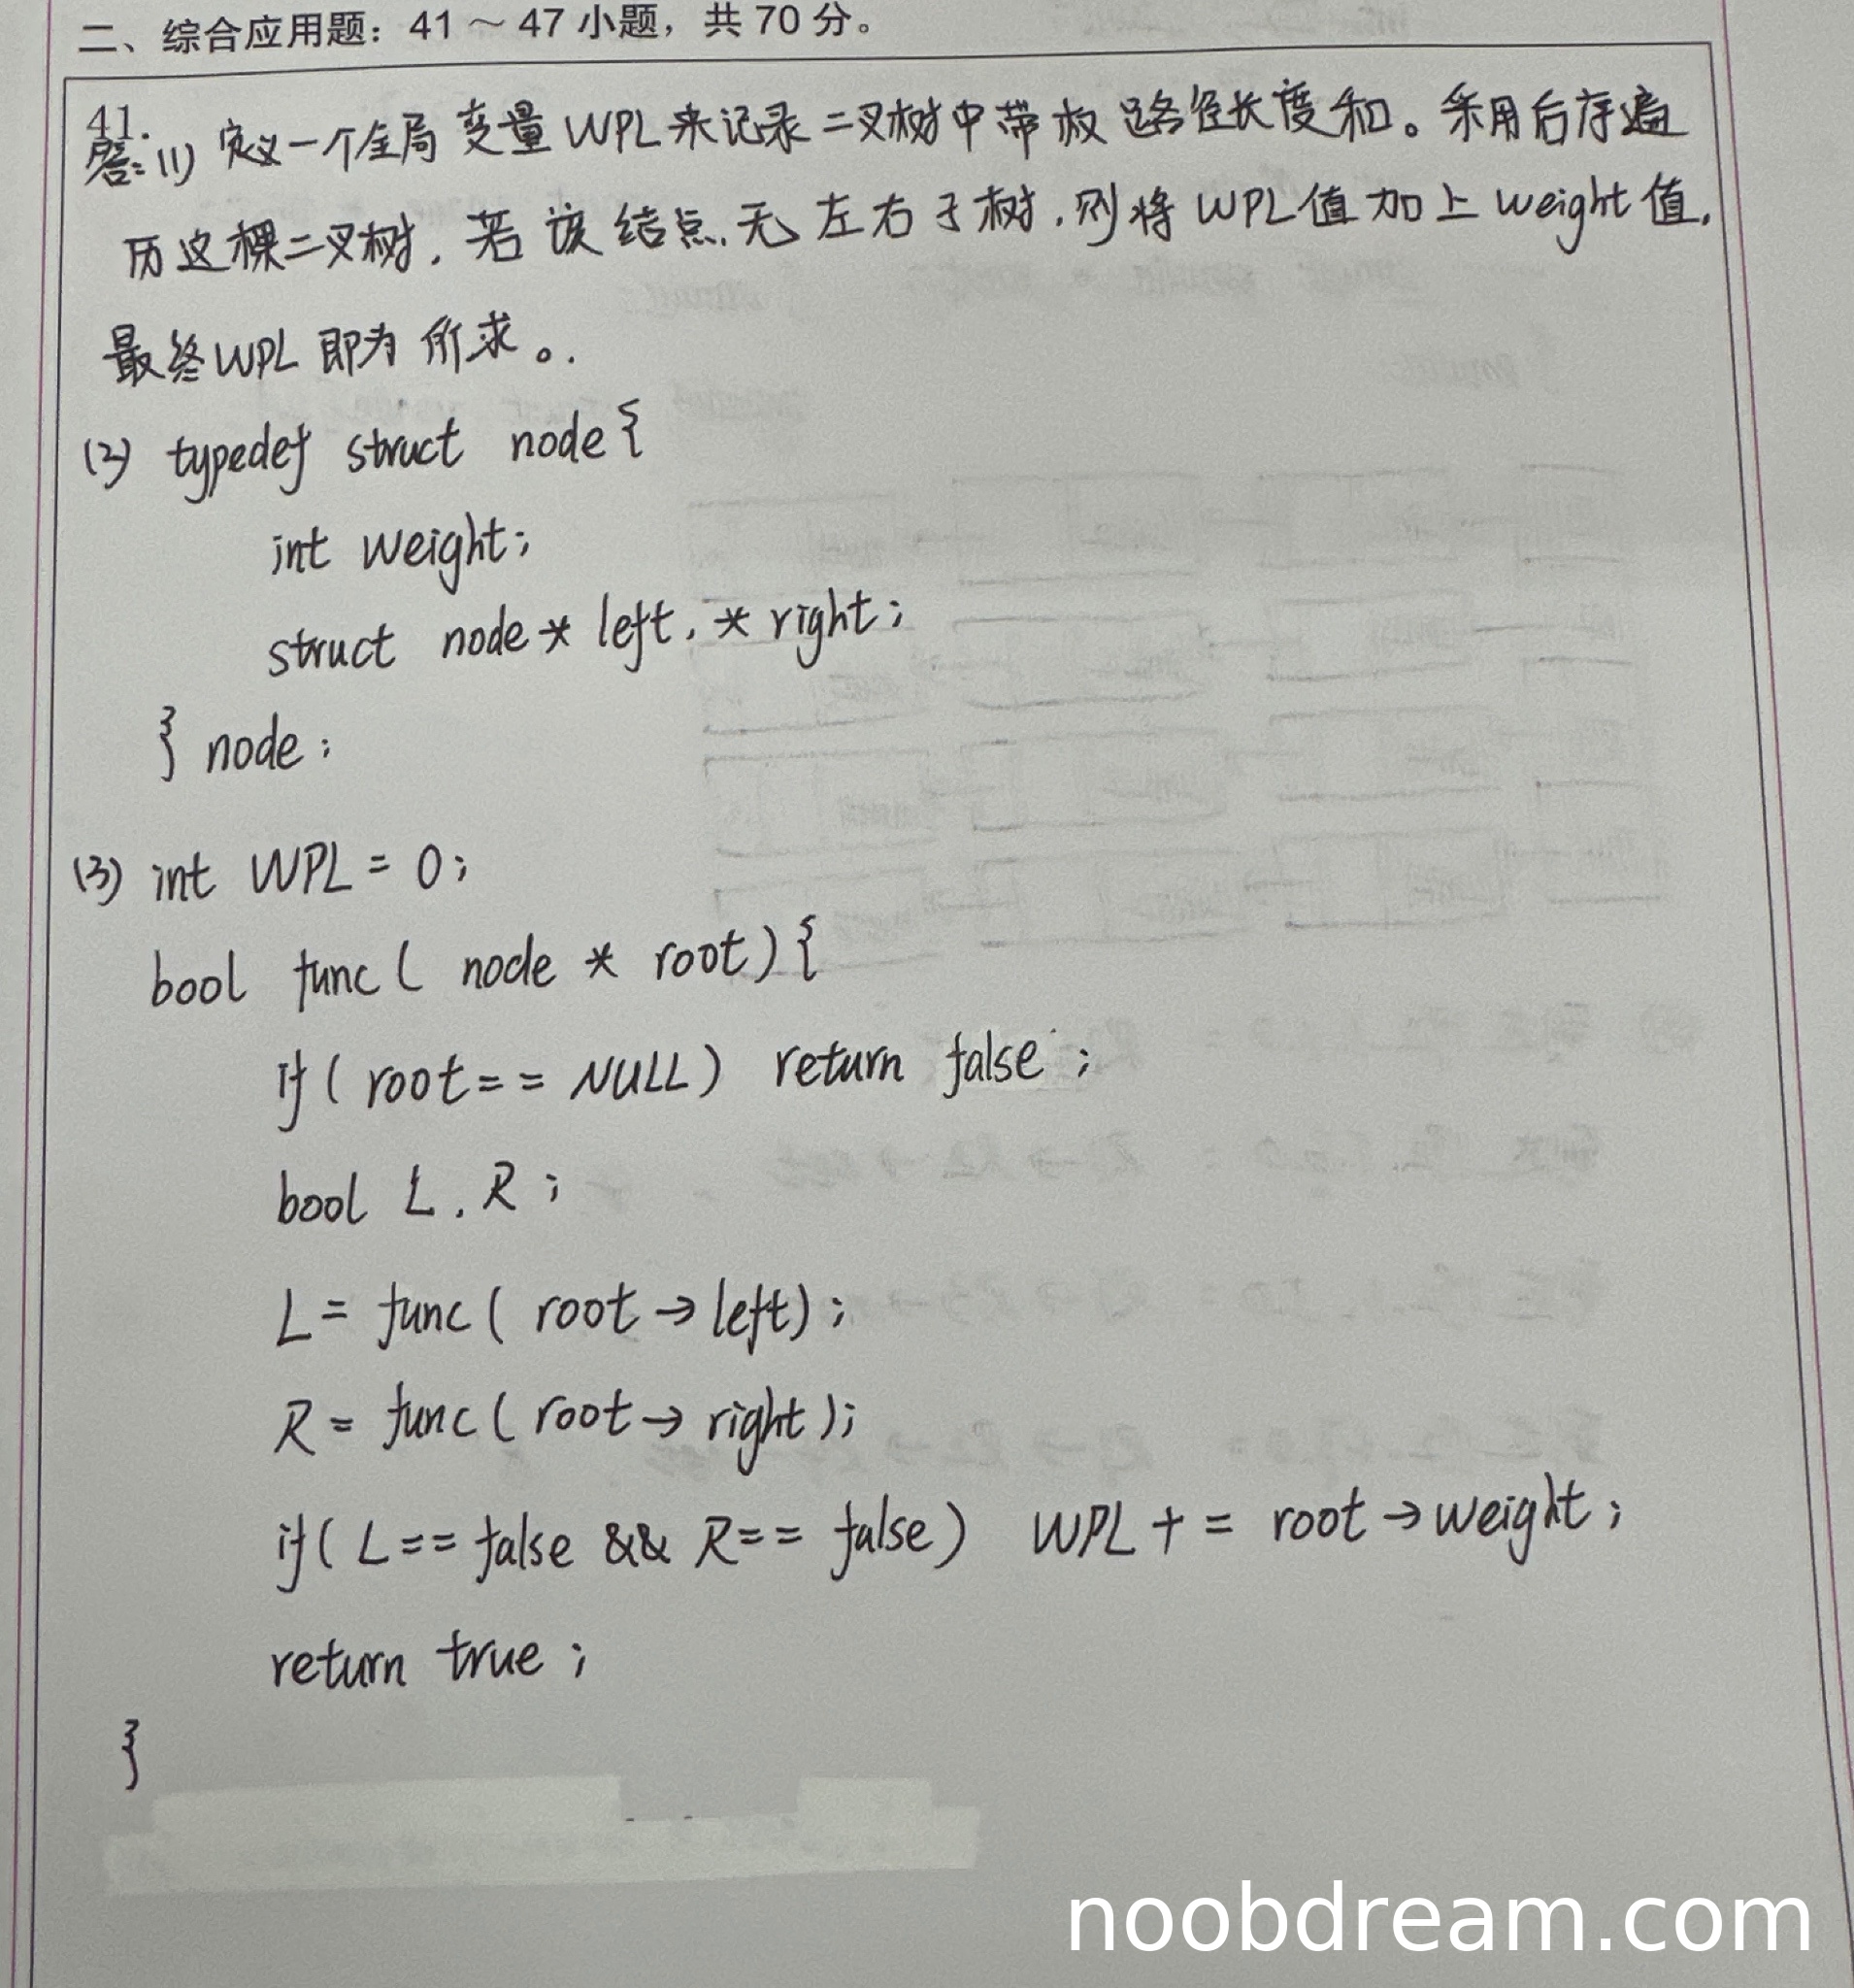 二、综合应用题：41 ～ 47 小题，共 70 分。
41.
答：(1) 定义一个全局变量WPL来记录二叉树中带权路径长度和。采用后序遍
历这棵二叉树，若该结点无左右子树，则将WPL值加上weight值，
最终WPL即为所求。
(2) typedef struct node {
int weight;
struct node * left, * right;
} node;
(3) int WPL = 0;
bool func( node * root) {
if( root == NULL) return false;
bool L, R;
L = func( root → left);
R = func( root → right);
if( L == false && R == false) WPL += root → weight;
return true;
}
noobdream.com